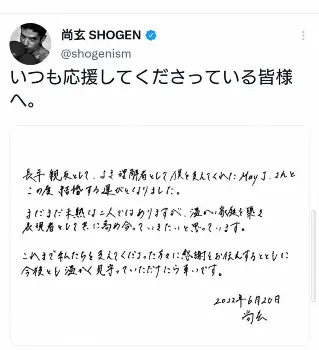 尚玄 SHOGEN
@shogenism
いつも応援してくださっている皆様
へ。
長年 親友として、よき理解者として僕を支えてくれた May J. さんと
この度 結婚する運びとなりました。
まだまだ未熟な二人ではありますが、温かい家庭を築き
表現者として共に高め合っていきたいと思っています。
これまで私たちを支えてくださった方々に感謝をお伝えするとともに
今後とも温かく見守っていただけたら幸いです。
2022年6月20日
尚玄